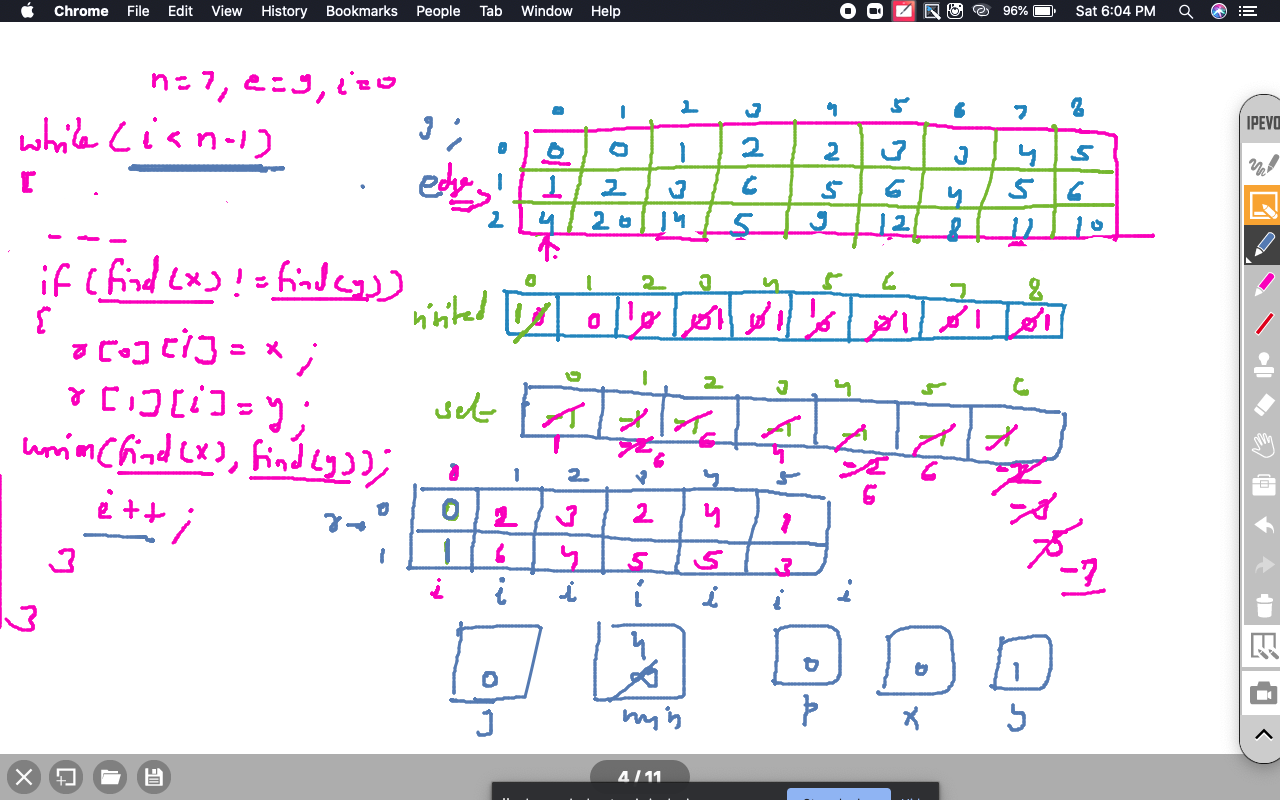 Chrome File Edit View History Bookmarks People Tab Window Help 96% Sat 6:04 PM
n=7, e=9, i=0
while (i < n-1)
{
---
if (find(x) != find(y))
{
r[0][i] = x;
r[1][i] = y;
union(find(x), find(y));
i++;
}
}
0 1 2 3 4 5 6 7 8
edge
0 0 0 1 2 2 3 3 4 5
1 1 2 3 6 5 6 4 5 6
2 4 20 14 5 9 12 8 11 10
0 1 2 3 4 5 6 7 8
visited 1 0 0 1 0 0 1 0 1 1 0 1 0 1 0 1
0 1 2 3 4 5 6
set -1 -1 -1 -1 -1 -1 -1
1 -2 6 6 4 -2 6 6 -2
-3
-5
-7
0 1 2 3 4 5
r→ 0 0 2 3 2 4 1
1 1 6 4 5 5 3
i i i i i i i
0 4 ∞ 0 0 1
j min p x y
IPEVO
4 / 11